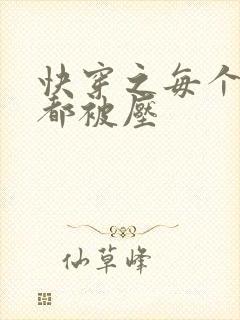 快穿之每个
都被壓
仙草峰